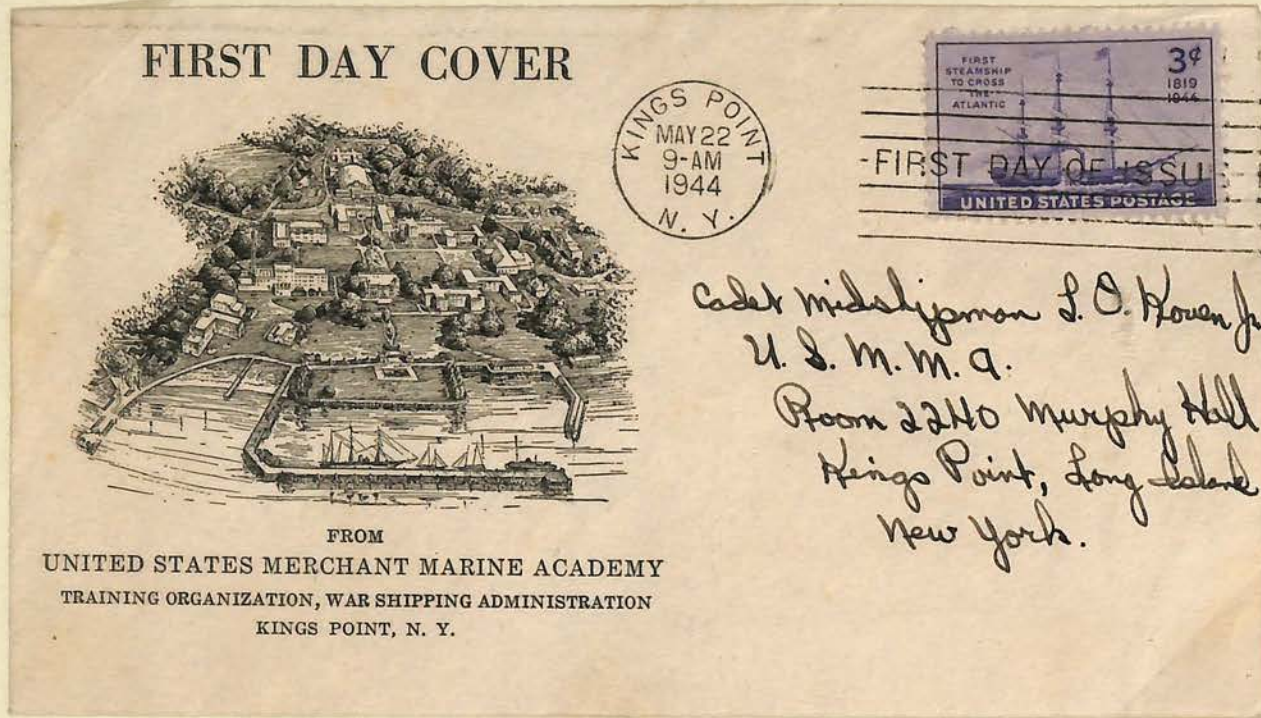 FIRST DAY COVER
KINGS POINT
MAY 22
9-AM
1944
N. Y.
FIRST
STEAMSHIP
TO CROSS
THE
ATLANTIC
3¢
1819
1944
-FIRST DAY OF ISSU
UNITED STATES POSTAGE
Cadet Midshipman L. O. Koven Jr.
U. S. M. M. A.
Room 2240 Murphy Hall
Kings Point, Long Island
New York.
FROM
UNITED STATES MERCHANT MARINE ACADEMY
TRAINING ORGANIZATION, WAR SHIPPING ADMINISTRATION
KINGS POINT, N. Y.